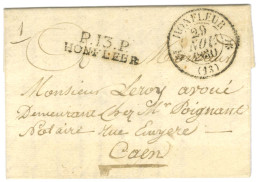 P.13.P
HONFLEUR
HONFLEUR
29
NOV.
(13)
A
Monsieur Leroy avoué
Demeurant chez Mr Poignant
Notaire rue Ecuyere
Caen